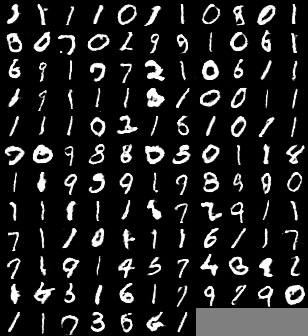 3 1 1 1 0 1 1 0 8 0 1
8 0 7 0 2 9 9 1 0 6 1
6 9 1 7 7 2 1 0 6 1 1
1 9 1 1 1 1 0 0 1 1
1 1 1 0 2 1 6 1 0 1 1
7 0 9 8 8 0 5 0 1 1 8
1 1 9 5 9 1 7 8 9 9 0
1 1 1 1 1 7 2 9 1 1
7 1 1 0 1 1 1 6 1 1 7
7 1 9 1 4 5 7 4 2
1 6 3 1 6 1 7 9 7 9 0
1 1 7 3 6 1